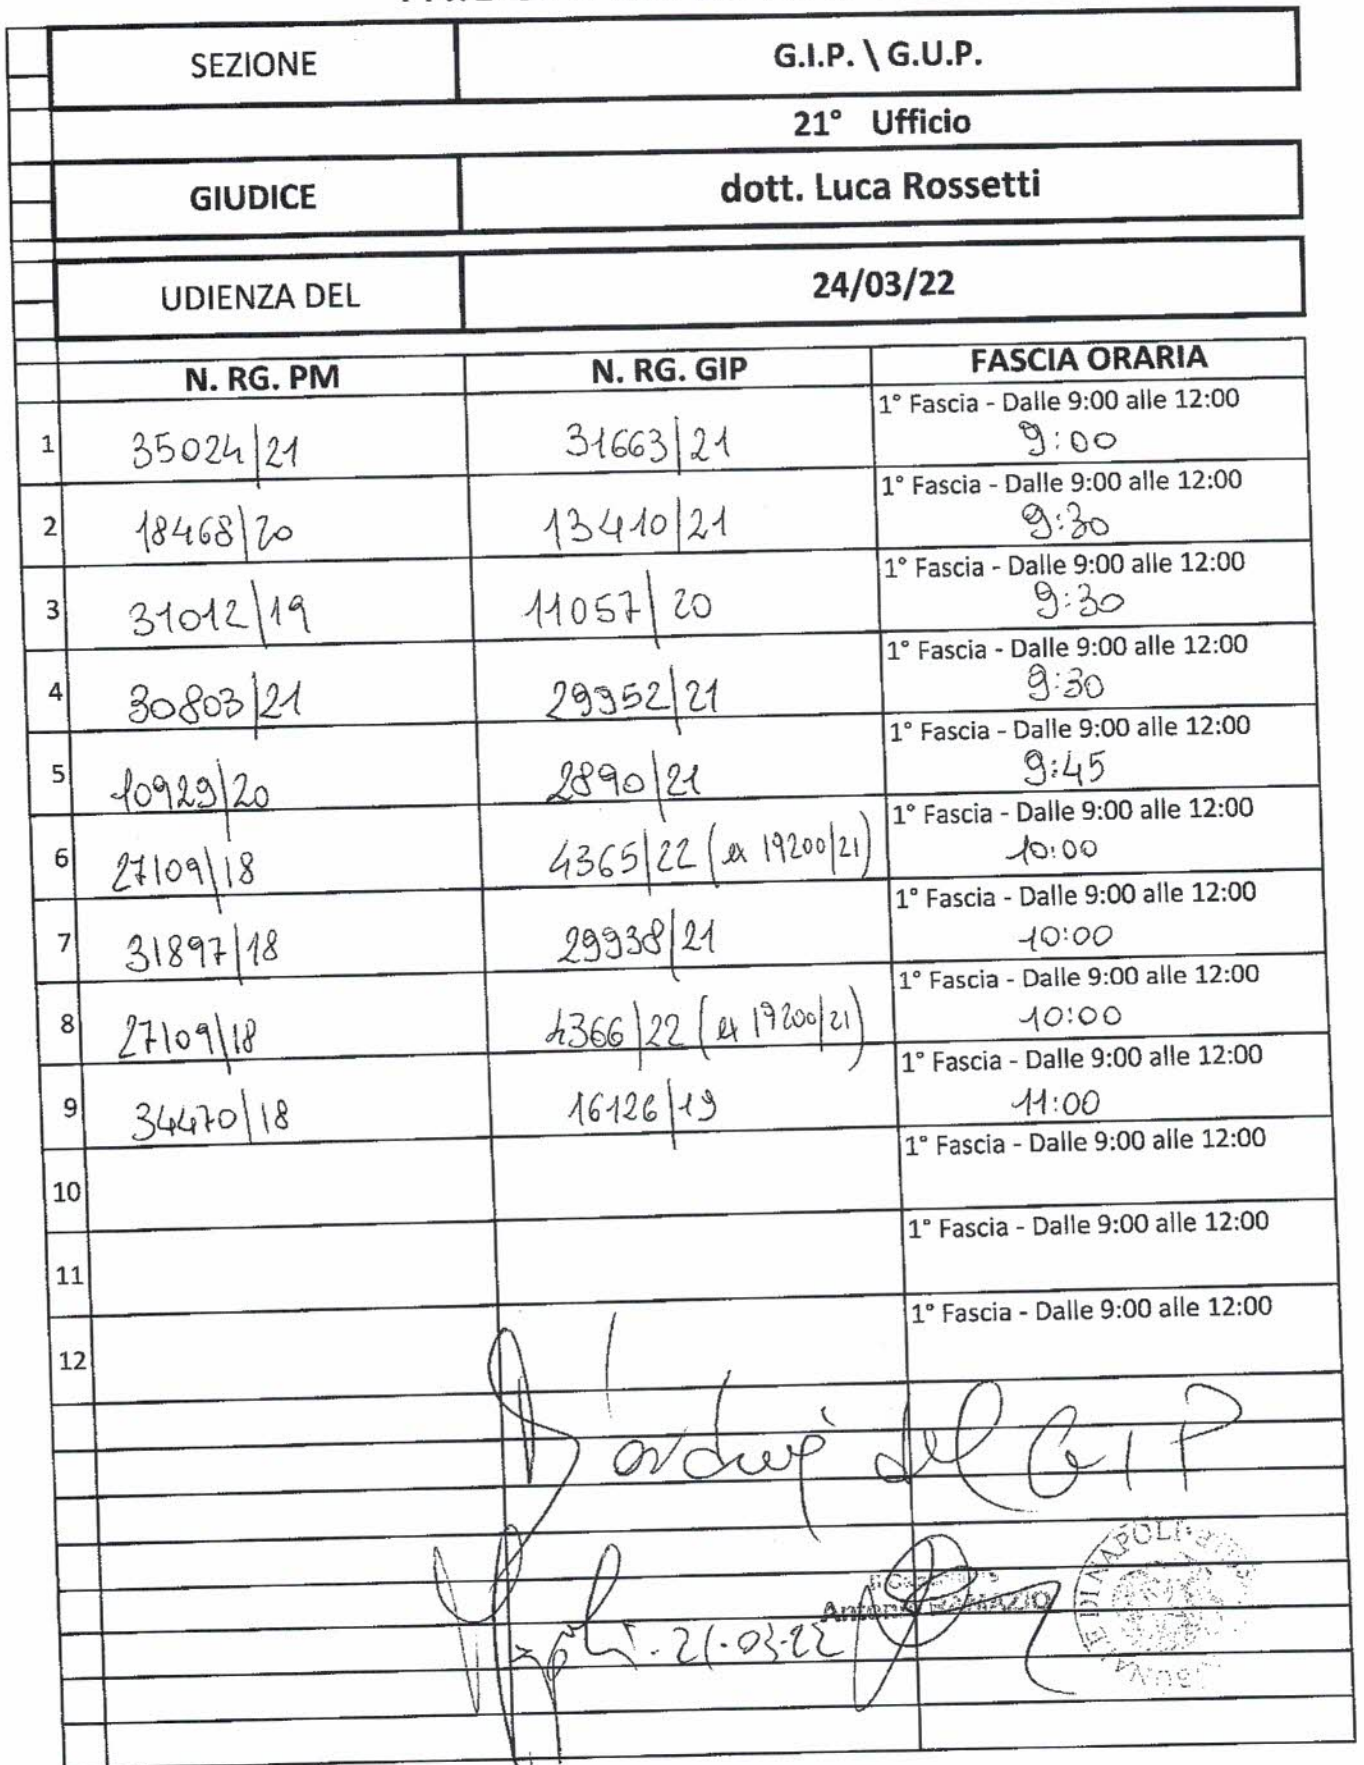 SEZIONE G.I.P. \ G.U.P.
21° Ufficio
GIUDICE dott. Luca Rossetti
UDIENZA DEL 24/03/22
N. RG. PM N. RG. GIP FASCIA ORARIA
1 35024/21 31663/21 1° Fascia - Dalle 9:00 alle 12:00
9:00
2 18468/20 13410/21 1° Fascia - Dalle 9:00 alle 12:00
9:30
3 31012/19 11057/20 1° Fascia - Dalle 9:00 alle 12:00
9:30
4 30803/21 29952/21 1° Fascia - Dalle 9:00 alle 12:00
9:30
5 10929/20 2890/21 1° Fascia - Dalle 9:00 alle 12:00
9:45
6 27109/18 4365/22 (ex 19200/21) 1° Fascia - Dalle 9:00 alle 12:00
10:00
7 31897/18 29938/21 1° Fascia - Dalle 9:00 alle 12:00
10:00
8 27109/18 4366/22 (ex 19200/21) 1° Fascia - Dalle 9:00 alle 12:00
10:00
9 34470/18 16126/19 1° Fascia - Dalle 9:00 alle 12:00
11:00
10 1° Fascia - Dalle 9:00 alle 12:00
11 1° Fascia - Dalle 9:00 alle 12:00
12 1° Fascia - Dalle 9:00 alle 12:00
D'ordine del GIP
Napoli. 21.03.22